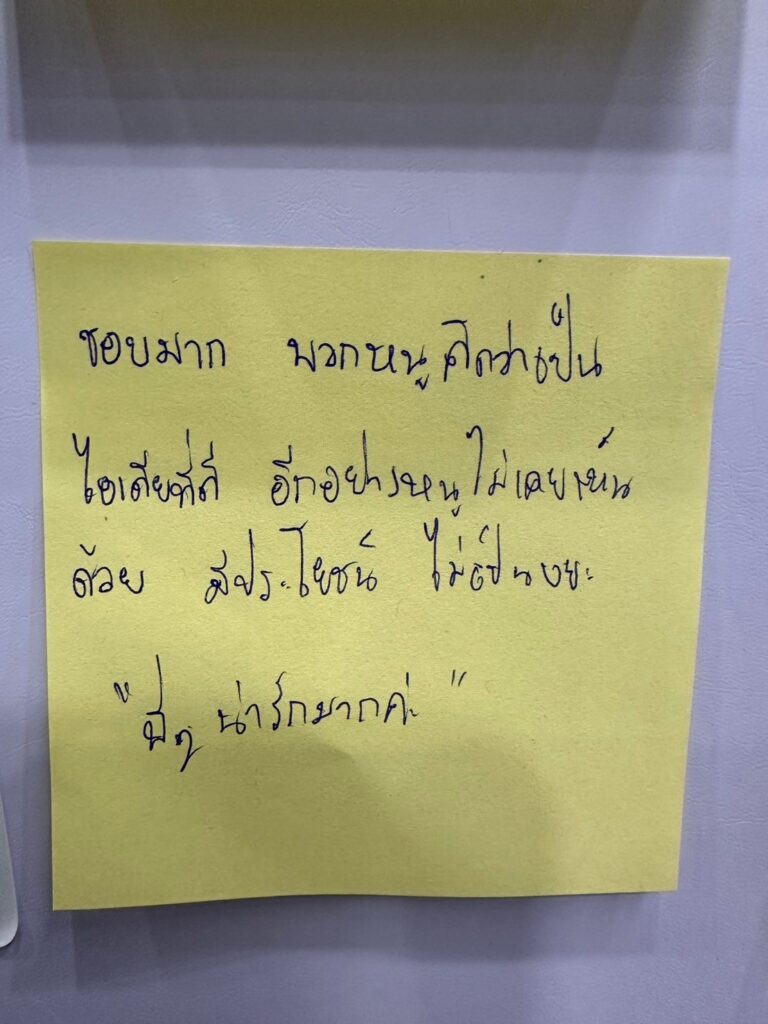 ชอบมาก พวกหนูคิดว่าเป็น
ไอเดียที่ดี อีกอย่างหนูไม่เคยเห็น
ด้วย มีประโยชน์ ไม่เป็นขยะ
"พี่ๆ น่ารักมากค่ะ"